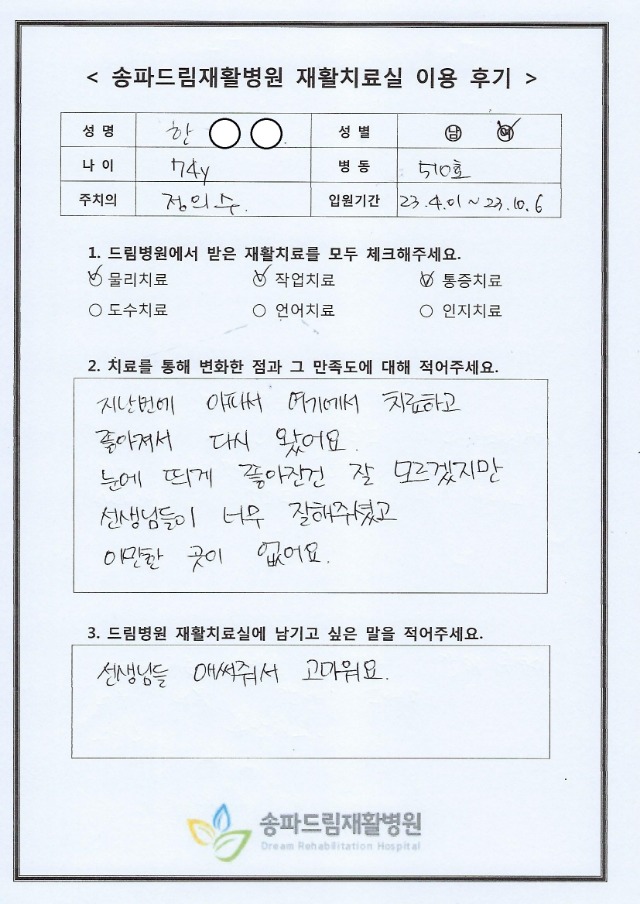 < 송파드림재활병원 재활치료실 이용 후기 >
성 명 한 ○ ○ 성 별 남 여
나 이 74y 병 동 510호
주치의 정의수. 입원기간 23.4.01 ~ 23.10.6
1. 드림병원에서 받은 재활치료를 모두 체크해주세요.
물리치료 작업치료 통증치료
도수치료 언어치료 인지치료
2. 치료를 통해 변화한 점과 그 만족도에 대해 적어주세요.
지난번에 아파서 여기에서 치료하고
좋아져서 다시 왔어요.
눈에 띄게 좋아진건 잘 모르겠지만
선생님들이 너무 잘해주셨고
이만한 곳이 없어요.
3. 드림병원 재활치료실에 남기고 싶은 말을 적어주세요.
선생님들 애써줘서 고마워요.
송파드림재활병원
Dream Rehabilitation Hospital